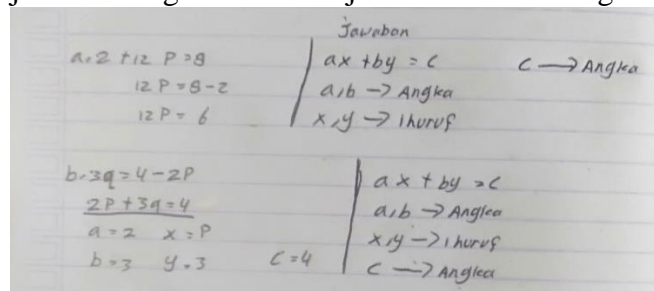 Jawaban
a. 2 + 12 P = 8
12 P = 8 - 2
12 P = 6
ax + by = c
a,b → Angka
x,y → 1 huruf
c → Angka
b. 3q = 4 - 2P
2P + 3q = 4
a = 2 x = P
b = 3 y = 3 c = 4
ax + by = c
a,b → Angka
x,y → 1 huruf
c → Angka